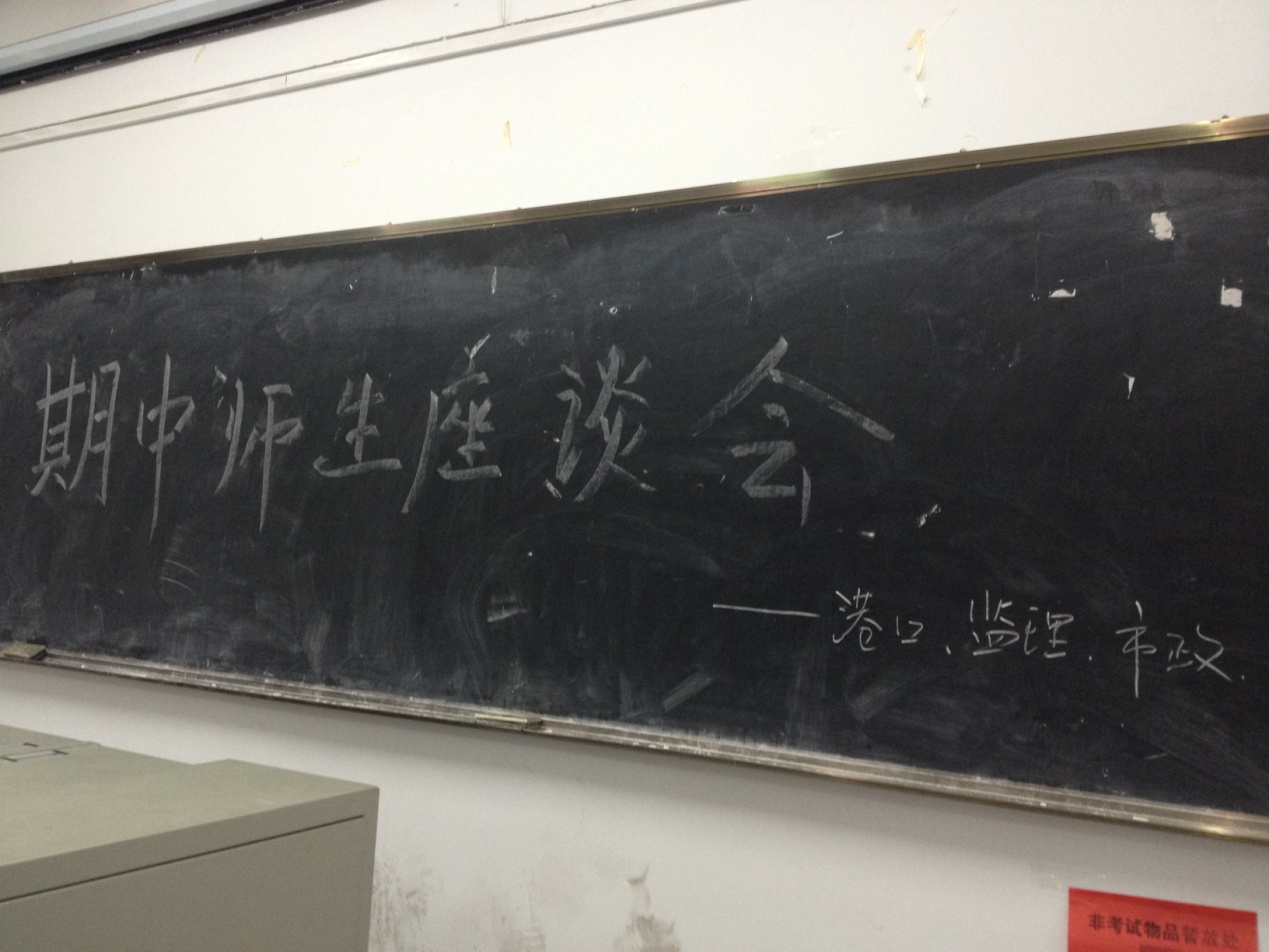 期中师生座谈会
——港口、监理、市政.
非考试物品暂放处